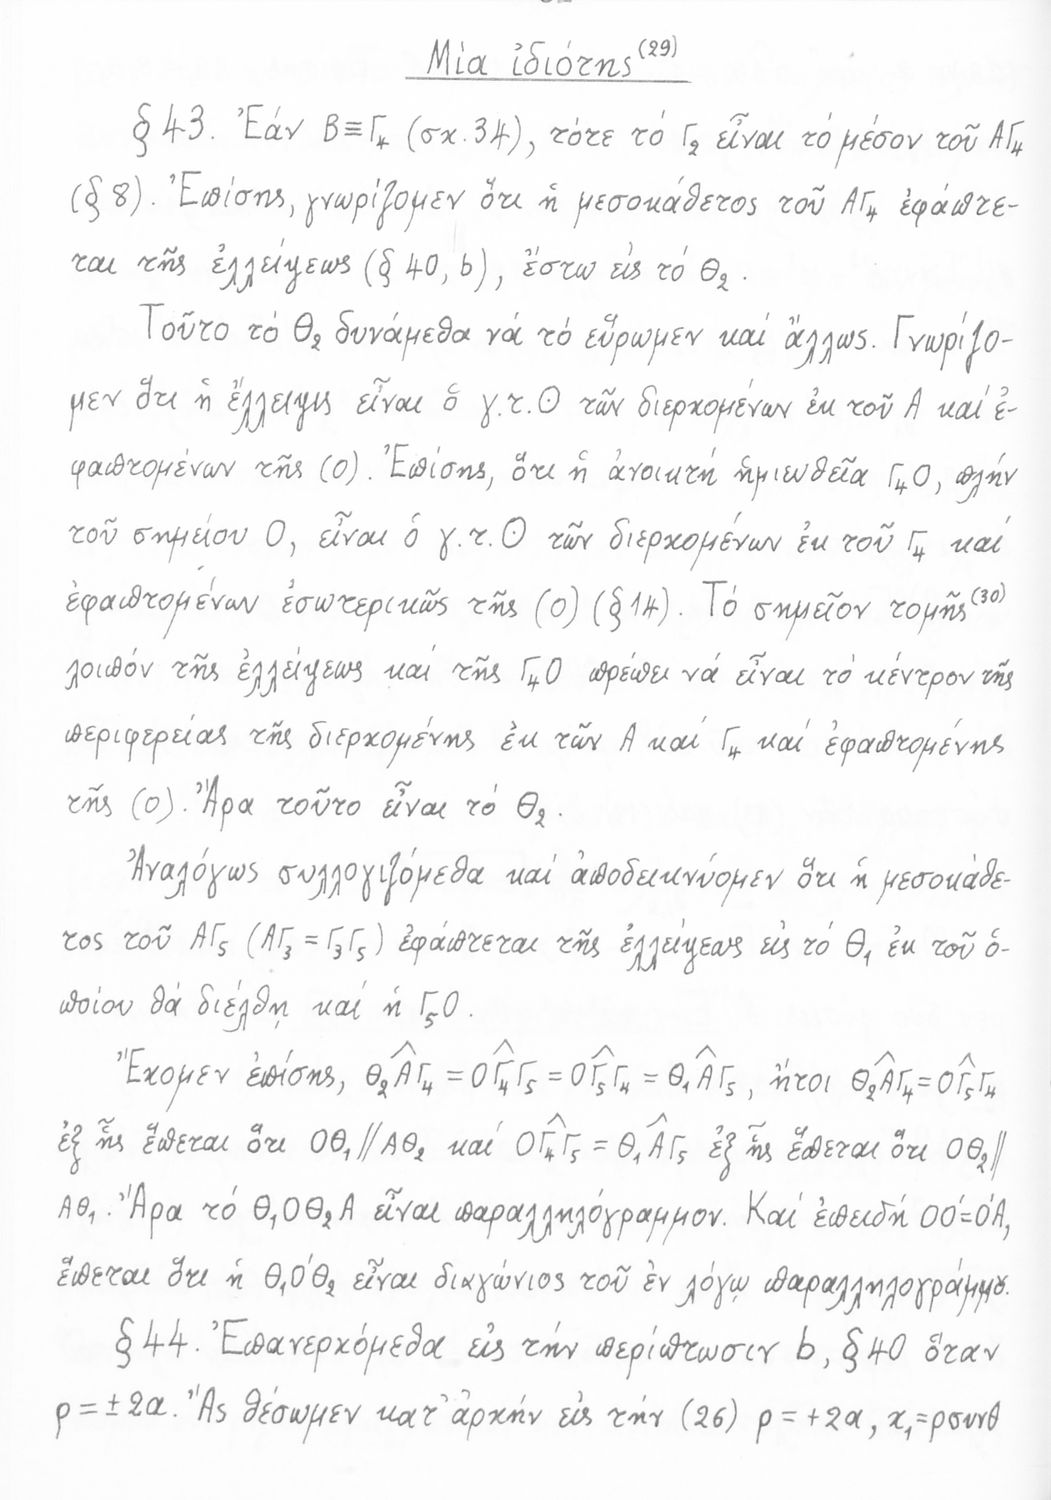 Μία ἰδιότης⁽²⁹⁾
§ 43. Ἐάν Β≡Γ₄ (σχ. 34), τότε τό Γ₂ εἶναι τό μέσον τοῦ ΑΓ₄
(§ 8). Ἐπίσης, γνωρίζομεν ὅτι ἡ μεσοκάθετος τοῦ ΑΓ₄ ἐφάπτε-
ται τῆς ἐλλείψεως (§ 40, b), ἔστω εἰς τό Θ₂.
Τοῦτο τό Θ₂ δυνάμεθα νά τό εὕρωμεν καί ἄλλως. Γνωρίζο-
μεν ὅτι ἡ ἔλλειψις εἶναι ὁ γ.τ.Θ τῶν διερχομένων ἐκ τοῦ Α καί ἐ-
φαπτομένων τῆς (Ο). Ἐπίσης, ὅτι ἡ ἀνοικτή ἡμιευθεῖα Γ₄Ο, πλήν
τοῦ σημείου Ο, εἶναι ὁ γ.τ.Θ τῶν διερχομένων ἐκ τοῦ Γ₄ καί
ἐφαπτομένων ἐσωτερικῶς τῆς (Ο) (§ 14). Τό σημεῖον τομῆς⁽³⁰⁾
λοιπόν τῆς ἐλλείψεως καί τῆς Γ₄Ο πρέπει νά εἶναι τό κέντρον τῆς
περιφερείας τῆς διερχομένης ἐκ τῶν Α καί Γ₄ καί ἐφαπτομένης
τῆς (Ο). Ἄρα τοῦτο εἶναι τό Θ₂.
Ἀναλόγως συλλογιζόμεθα καί ἀποδεικνύομεν ὅτι ἡ μεσοκάθε-
τος τοῦ ΑΓ₅ (ΑΓ₃ = Γ₃Γ₅) ἐφάπτεται τῆς ἐλλείψεως εἰς τό Θ₁ ἐκ τοῦ ὁ-
ποίου θά διέλθῃ καί ἡ Γ₅Ο.
Ἔχομεν ἐπίσης, Θ₂Α̂Γ₄ = ΟΓ̂₄Γ₅ = ΟΓ̂₅Γ₄ = Θ₁Α̂Γ₅, ἤτοι Θ₂Α̂Γ₄ = ΟΓ̂₅Γ₄
ἐξ ἧς ἕπεται ὅτι ΟΘ₁//ΑΘ₂ καί ΟΓ̂₄Γ₅ = Θ₁Α̂Γ₅ ἐξ ἧς ἕπεται ὅτι ΟΘ₂//
ΑΘ₁. Ἄρα τό Θ₁ΟΘ₂Α εἶναι παραλληλόγραμμον. Καί ἐπειδή ΟΌ=ΌΑ,
ἕπεται ὅτι ἡ Θ₁ΌΘ₂ εἶναι διαγώνιος τοῦ ἐν λόγῳ παραλληλογράμμου.
§ 44. Ἐπανερχόμεθα εἰς τήν περίπτωσιν b, § 40 ὅταν
ρ = ± 2α. Ἄς θέσωμεν κατ' ἀρχήν εἰς τήν (26) ρ = +2α, x₁=ρσυνθ